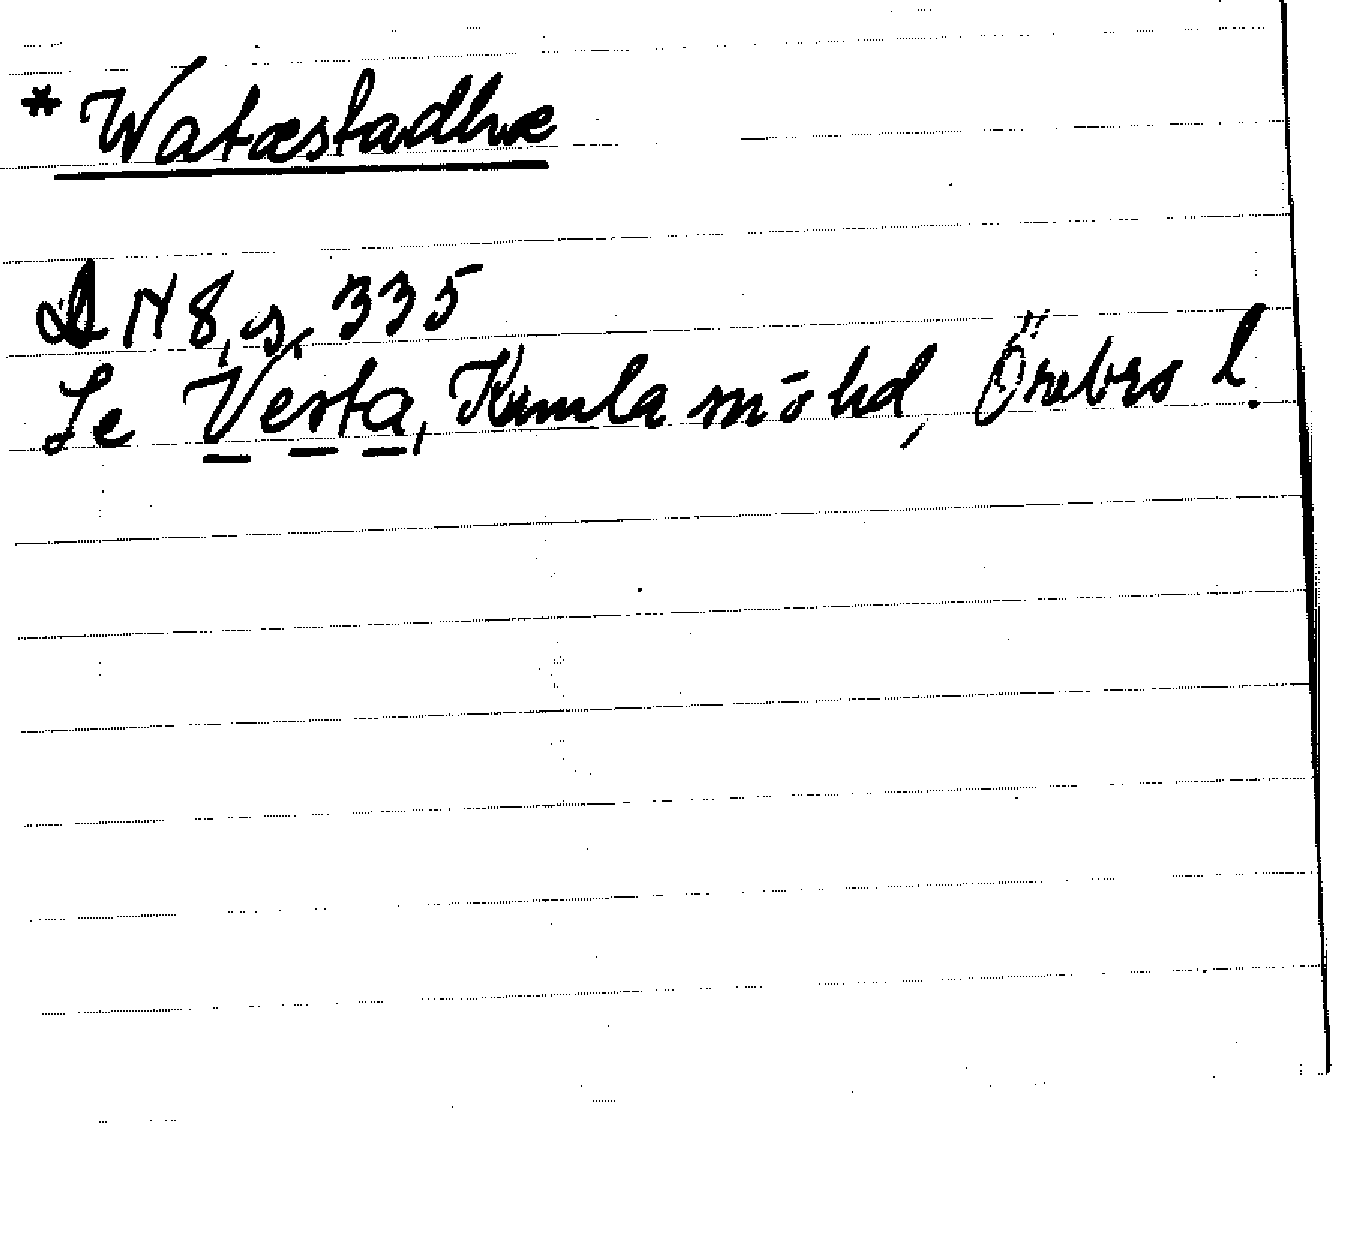 * Watæstadhæ
DN 8, s. 335
Se Vesta, Kumla sn o hd, Örebro l.